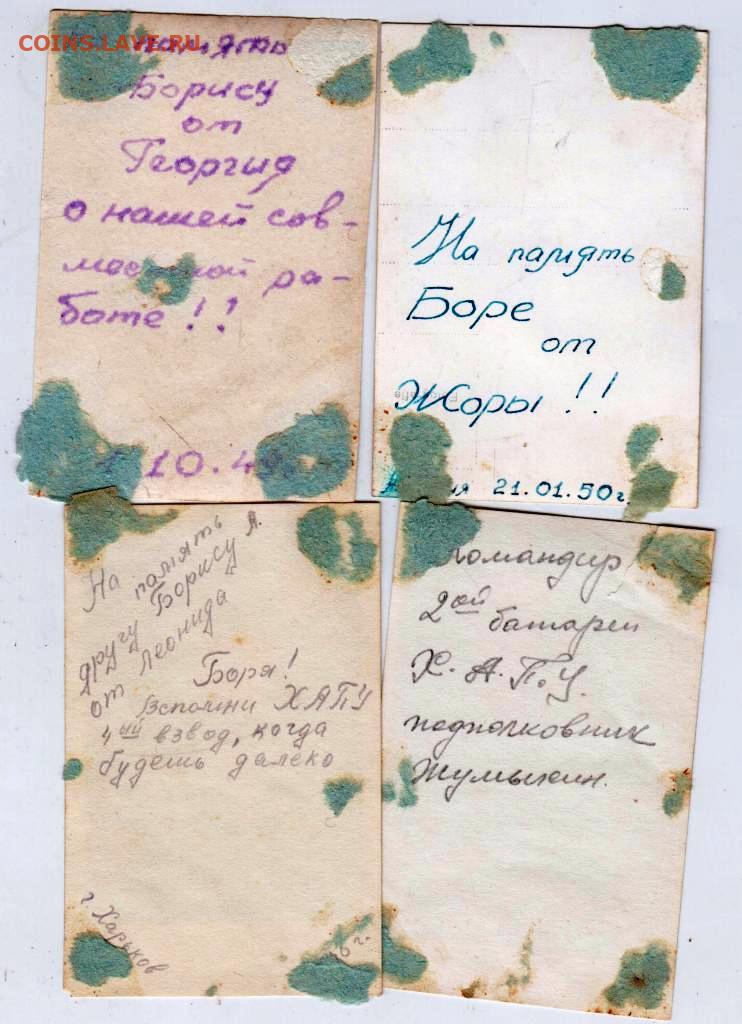 COINS.LAVE.RU
память
Борису
от
Георгия
о нашей сов-
местной ра-
боте!!
10.4
На память
Боре
от
Жоры!!
21.01.50г.
На память
другу Борису А.
от Леонида
Боря!
Вспомни ХАПУ
4ый взвод, когда
будешь далеко
г. Харьков
6 г.
Командир
2ой батареи
Х.А.П.У.
подполковник